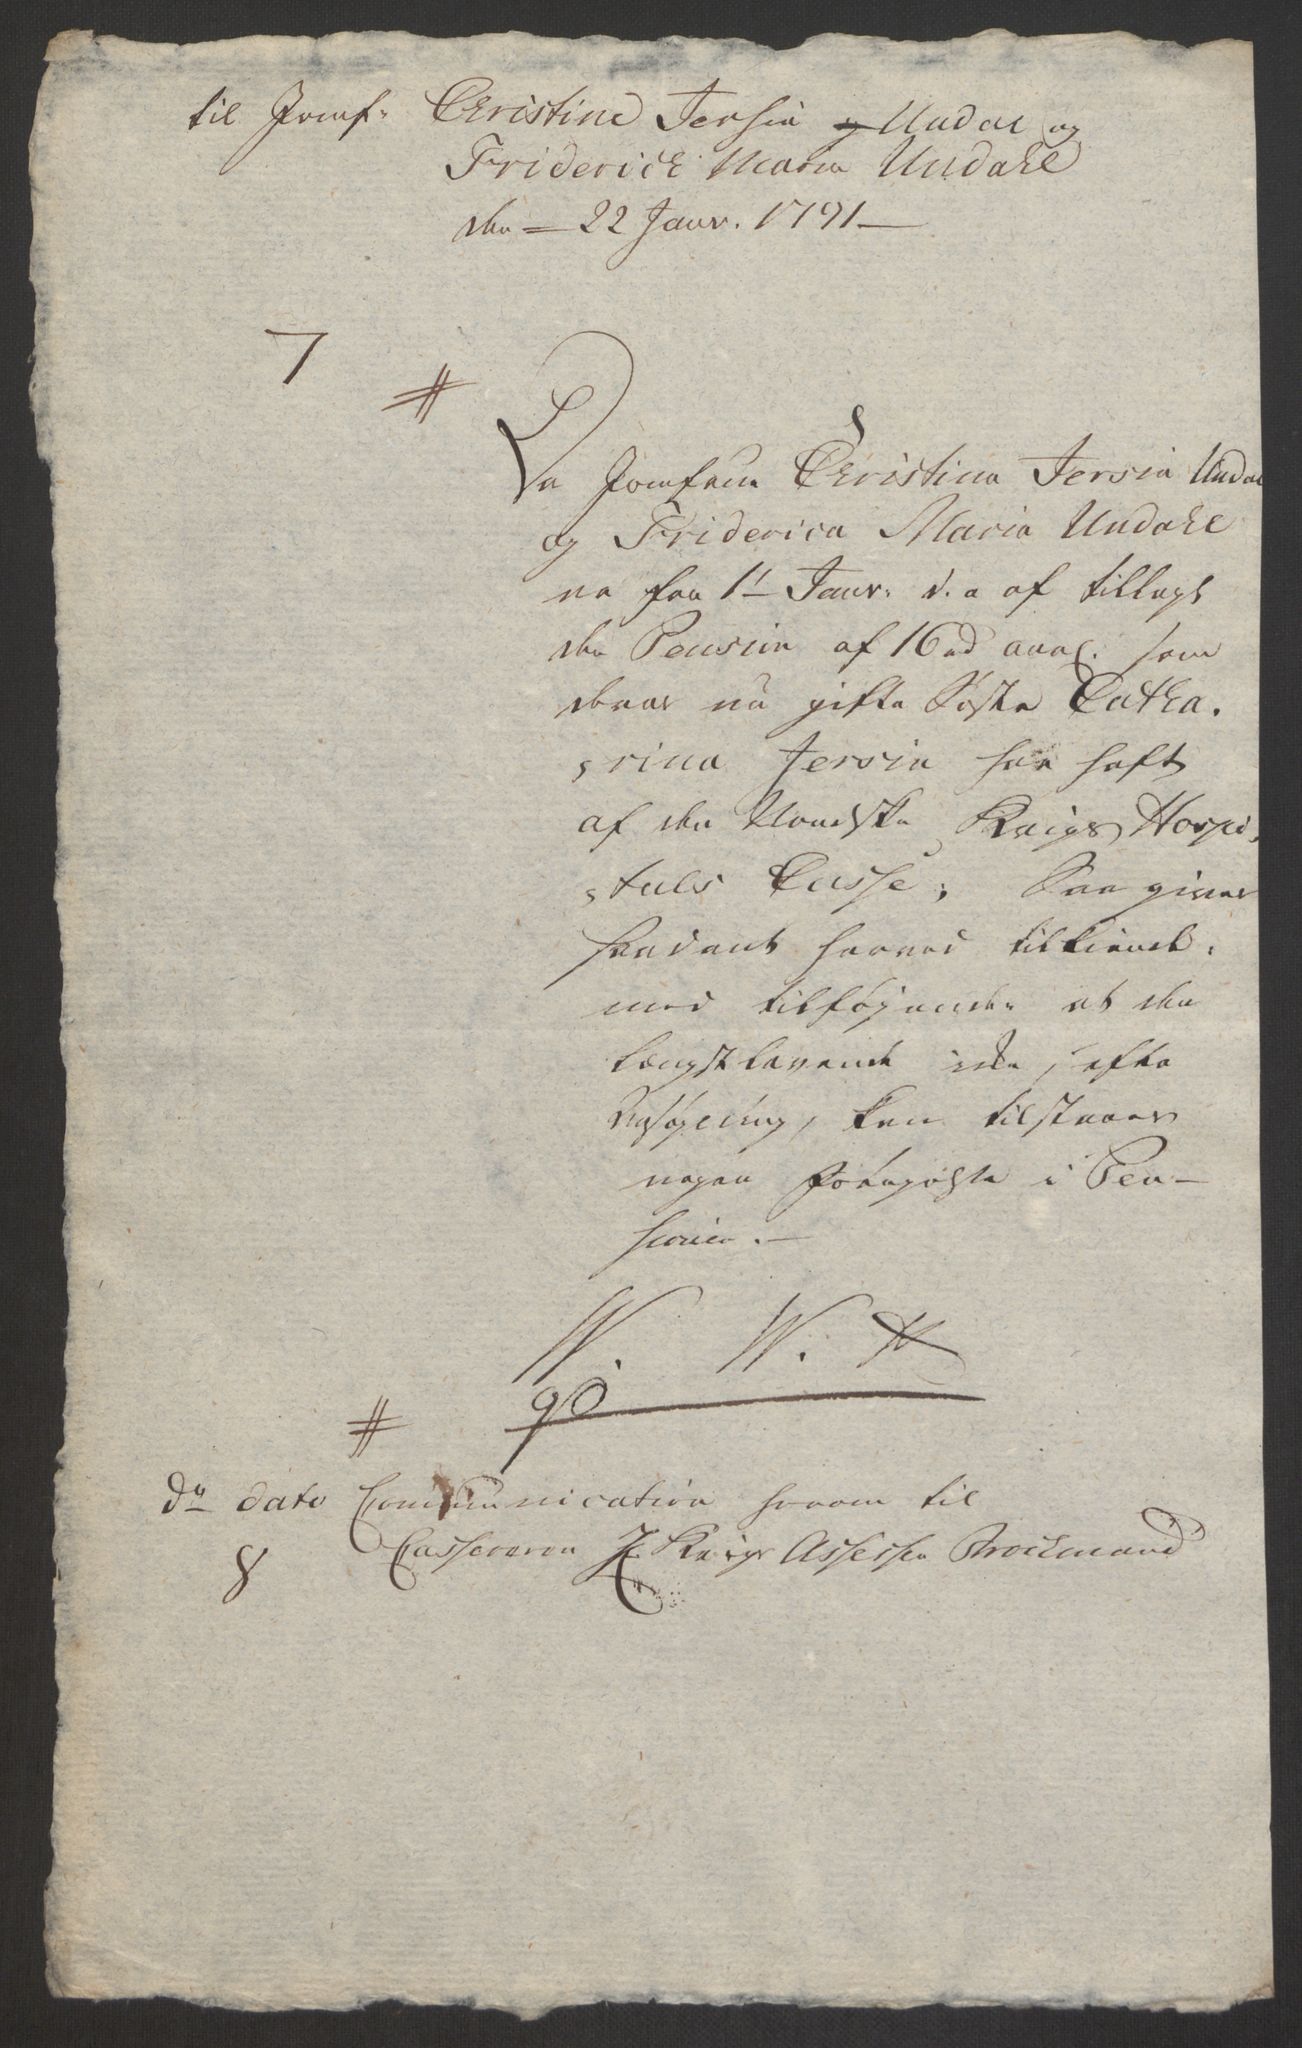 til Jomf: Christine Jersin Undal og
Friderich Maria Undahl
den = 22 Janr. 1791 —
7
#
Da Jomfrue Christina Jersin Undal
og Friderica Maria Undahl
er fra 1t Janr. d. a af tillagt
den Pension af 16 rd aarl. som
deres nu gifte Søster Catha,
,rina Jersin har haft
af den Nordske Krigs Hospi,
,tals Casse; Saa gives
saadant herved tilkiende,
med tilføjende at den
længstlevende ikke, efter
Ansøgning, kan tilstaaes
nogen forhøyelse i Pen-
sionen. —
W. W. H
#
do dato Communication herom til
8 Cassereren Hr Krigs Assessor Brockmand